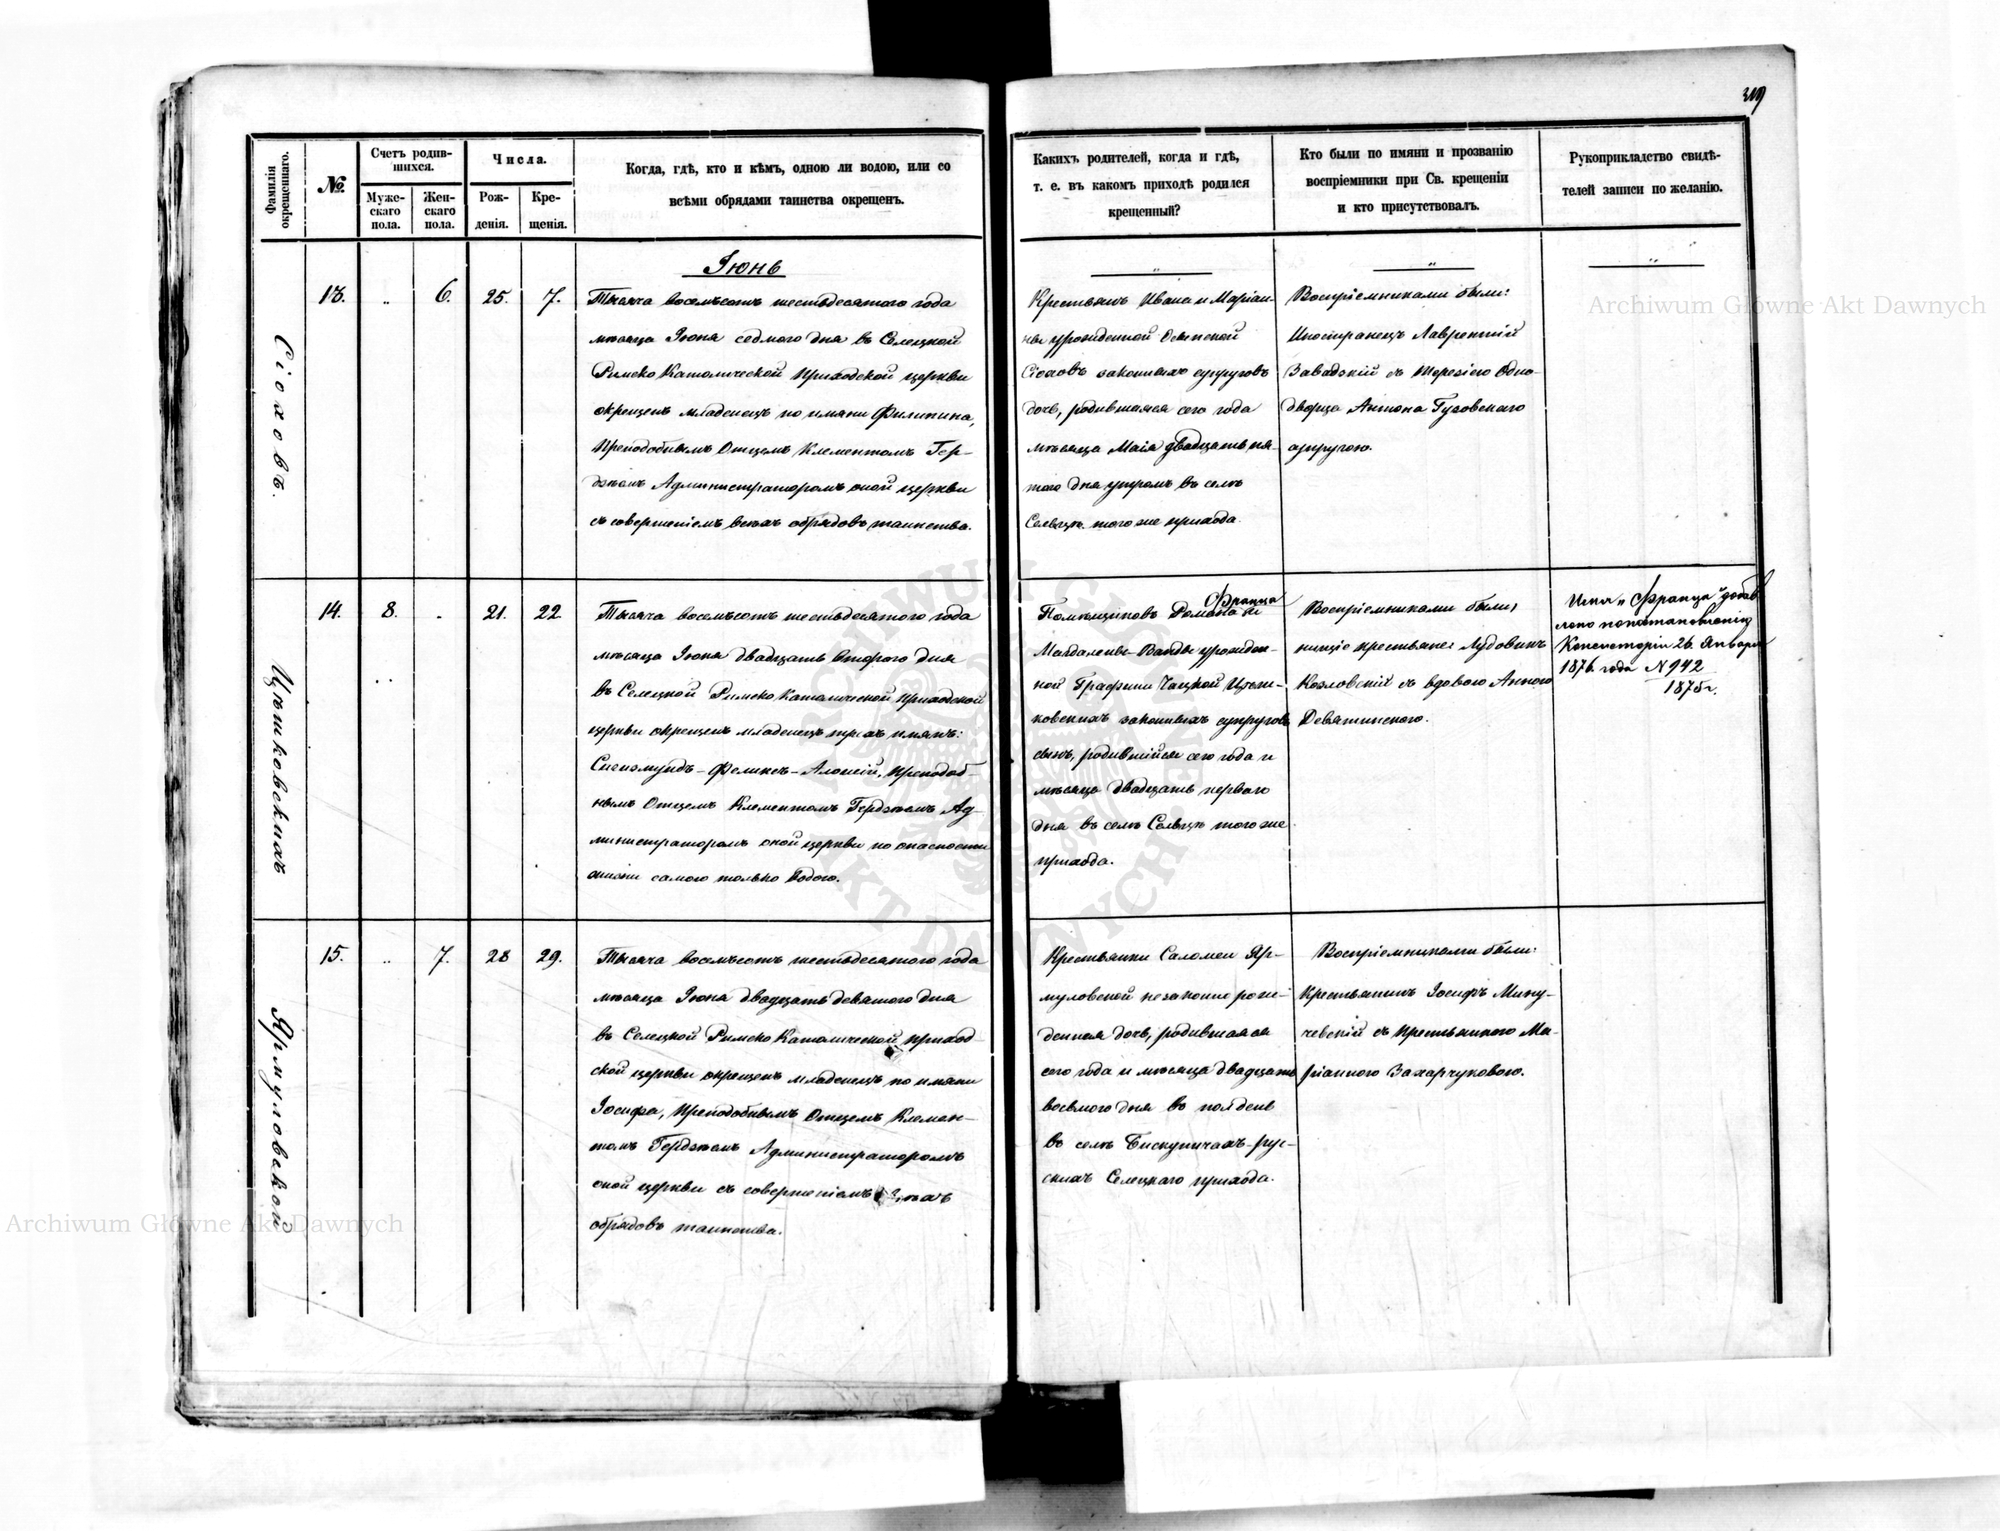 319
Фамилія окрещеннаго.
№.
Счетъ родив-
шихся.
Муже-
скаго
пола.
Жен-
скаго
пола.
Числа.
Рож-
денія.
Кре-
щенія.
Когда, гдѣ, кто и кѣмъ, одною ли водою, или со
всѣми обрядами таинства окрещенъ.
Какихъ родителей, когда и гдѣ,
т. е. въ какомъ приходѣ родился
крещенный?
Кто были по имяни и прозванію
воспріемники при Св. крещеніи
и кто присутствовалъ.
Рукоприкладство свидѣ-
телей записи по желанію.
Іюнь
Сіоховъ.
13.
6.
25.
7.
Тысяча восемьсотъ шестьдесятого года
мѣсяца Іюня седмого дня въ Селецкой
Римско Католической Приходской церкви
окрещенъ младенецъ по имяни Филипина,
Преподобнымъ Отцемъ Клементомъ Гер-
дзѣомъ Администраторомъ оной церкви
съ совершеніемъ всѣхъ обрядовъ таинства.
Крестьянъ Ивана и Маріан-
ны урожденной
Сіоховъ законныхъ супруговъ
дочь, родившаяся сего года
мѣсяца Маія двадцать пя-
того дня утромъ въ селѣ
Сельцѣ того же прихода.
Воспріемниками были:
Иностранецъ Лаврентій
Завадзкій съ Терезіею Одно-
дворца Антона Гузовскаго
супругою.
Цѣшковскихъ
14.
8.
21.
22.
Тысяча восемьсотъ шестьдесятого года
мѣсяца Іюня двадцать второго дня
въ Селецкой Римско Католической Приходской
церкви окрещенъ младенецъ трехъ имянъ:
Сигизмундъ-Феликсъ-Алоизій, Преподоб-
нымъ Отцемъ Клементомъ Гердзѣомъ Ад-
министраторомъ оной церкви по опасности
жизни самою только водою.
Франца
Помѣщиковъ Романа и
Магдалены-Ванды урожден-
ной Графини Чацкой Цѣш-
ковскихъ законныхъ супруговъ
сынъ, родившійся сего года и
мѣсяца двадцать перваго
дня въ селѣ Сельцѣ того же
прихода.
Воспріемниками были,
нищіе крестьяне: Лудовикъ
Козловскій съ вдовою Анною
Девятинскою.
Имя „Франца" добав
лено по постановленію
Консисторіи 26 Января
1876 года № 942
1875 г.
Ярмуловской
15.
7.
28
29.
Тысяча восемьсотъ шестьдесятого года
мѣсяца Іюня двадцать девятого дня
въ Селецкой Римско Католической приход-
ской церкви окрещенъ младенецъ по имяни
Іосифа, Преподобнымъ Отцемъ Клемен-
томъ Гердзѣомъ Администраторомъ
оной церкви съ совершеніемъ всѣхъ
обрядовъ таинства.
Крестьянки Саломеи Яр-
муловской незаконно рож-
денная дочь, родившаяся
сего года и мѣсяца двадцать
восьмого дня въ полдень
въ селѣ Бискупичахъ-рус-
скихъ Селецкаго прихода.
Воспріемниками были:
Крестьянинъ Іосифъ Мину-
чевскій съ крестьянкою Ма-
ріанною Захарчуковою.
Archiwum Główne Akt Dawnych
Archiwum Główne Akt Dawnych
ARCHIWUM GŁÓWNE AKT DAWNYCH